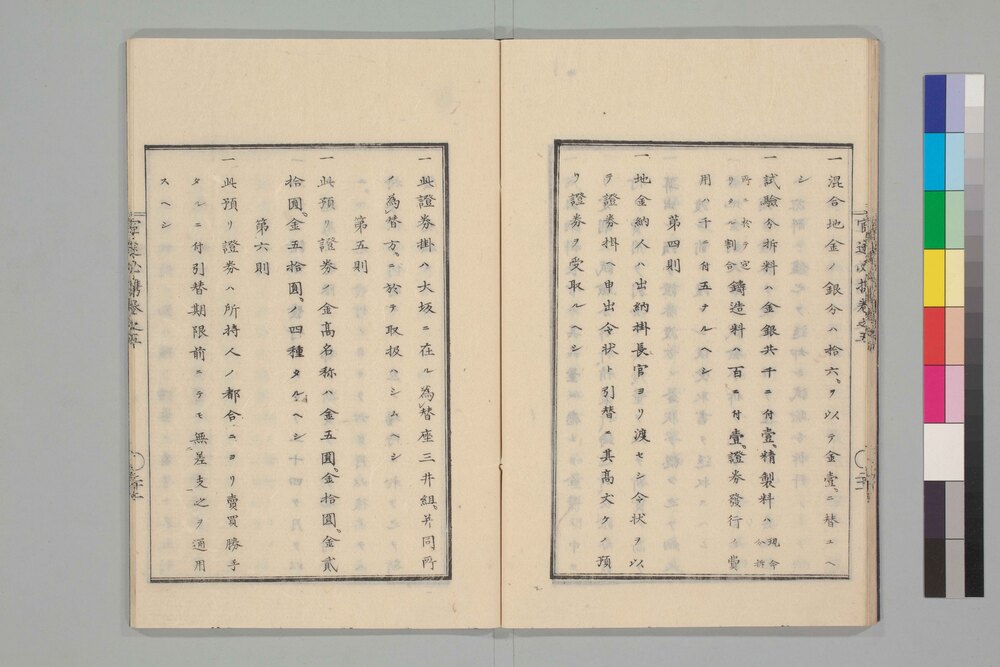 一混合地金ノ銀分ハ拾六、ヲ以テ金壹、ニ替ユヘ
シ
一試驗分析料ハ金銀共千ニ付壹、精製料ハ現今分析
所ニ於テ定
リタル割合鑄造料ハ金百ニ付壹、證券發行ノ費
用ハ千ニ付五タルヘシ
第四則
一地金納人ハ出納掛長官ヨリ渡セシ令状ヲ以
テ證券掛ヘ申出令状ト引替ニ其高丈ケノ預
リ證券ヲ受取ルヘシ
一此證券掛ハ大坂ニ在ル為替座三井組、并同所
ノ為替方、ニ於テ取扱ハシムヘシ
第五則
一此預リ證券ハ金高名称ハ金五圓、金拾圓、金貳
拾圓、金五拾圓、ノ四種タルヘシ
第六則
一此預リ證券ハ所持人ノ都合ニヨリ賣買勝手
タルニ付引替期限前ニテモ無差支之ヲ通用
スヘシ